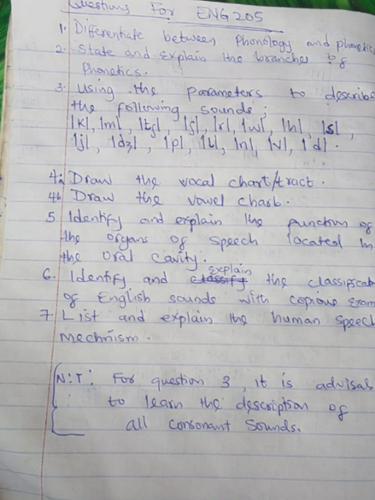 Questions For ENG 205
1. Differentiate between Phonology and phonetics
2. State and explain the branches of
Phonetics.
3. Using the parameters to describe
the following sounds:
|k|, |m|, |tʃ|, |ʃ|, |r|, |w|, |h|, |s|,
|j|, |dʒ|, |p|, |t|, |n|, |v|, |d|.
4a Draw the vocal chart/tract.
4b Draw the vowel chart.
5 Identify and explain the function of
the organs of speech located in
the oral cavity.
explain
6. Identify and classify the classificat
of English sounds with copious exam
7 List and explain the human speech
mechnism.
N:T: For question 3, it is advisab
to learn the description of
all consonant sounds.